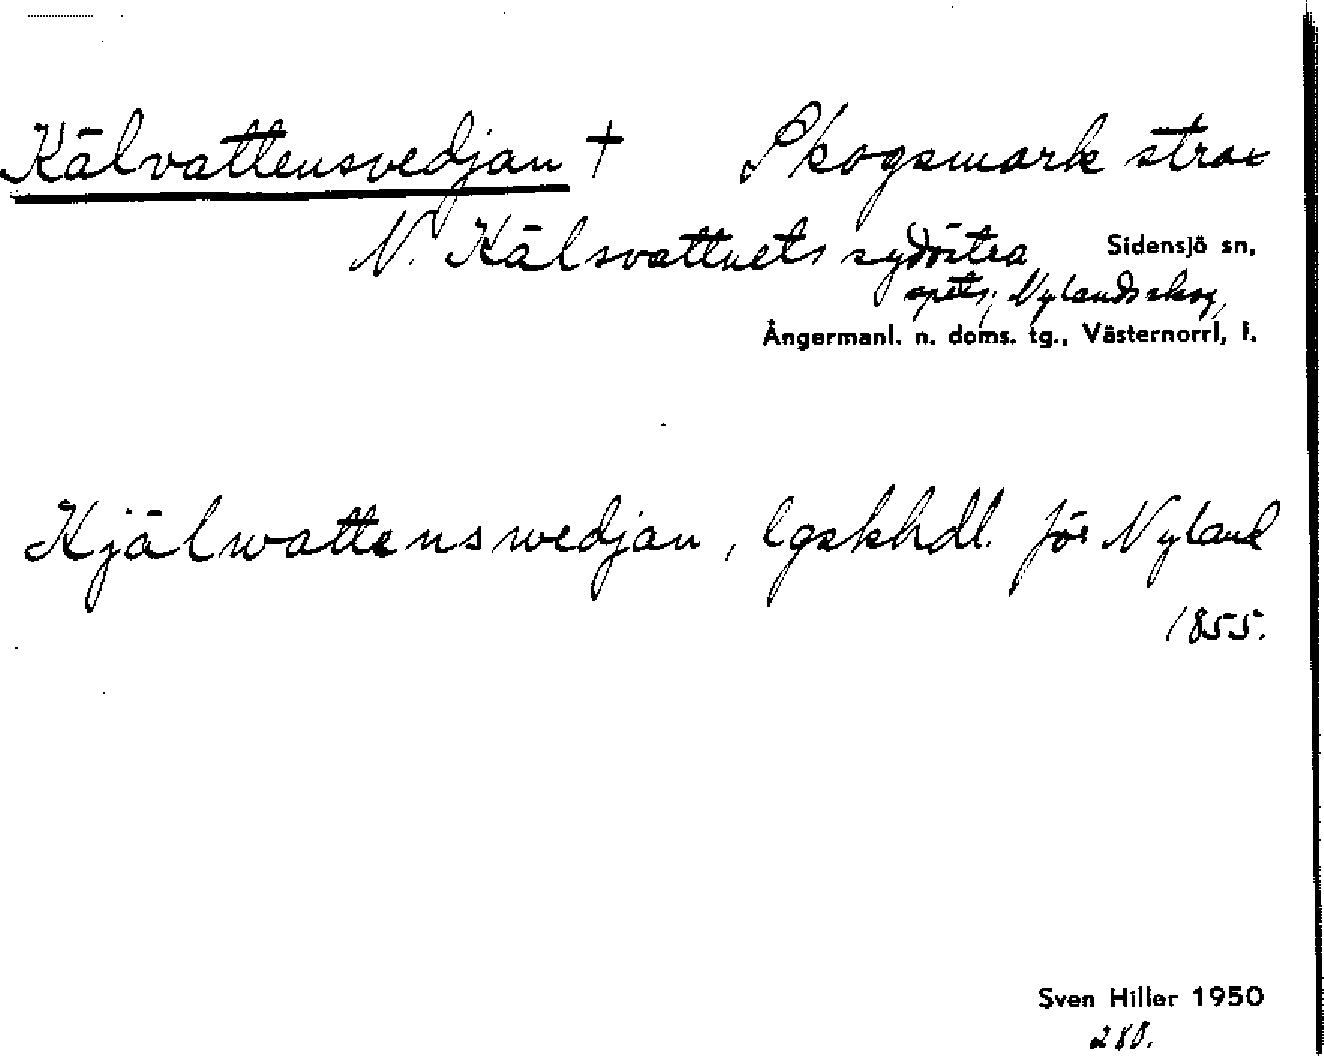 Kälvattensvedjan † Skogsmark strax
N. Kälsvattnets sydöstra Sidensjö sn,
spets; Nylands skog,
Ångermanl. n. doms. tg., Västernorrl, l.
Kjälwattenswedjan, lgskhdl. för Nyland
1855.
Sven Hiller 1950
280.